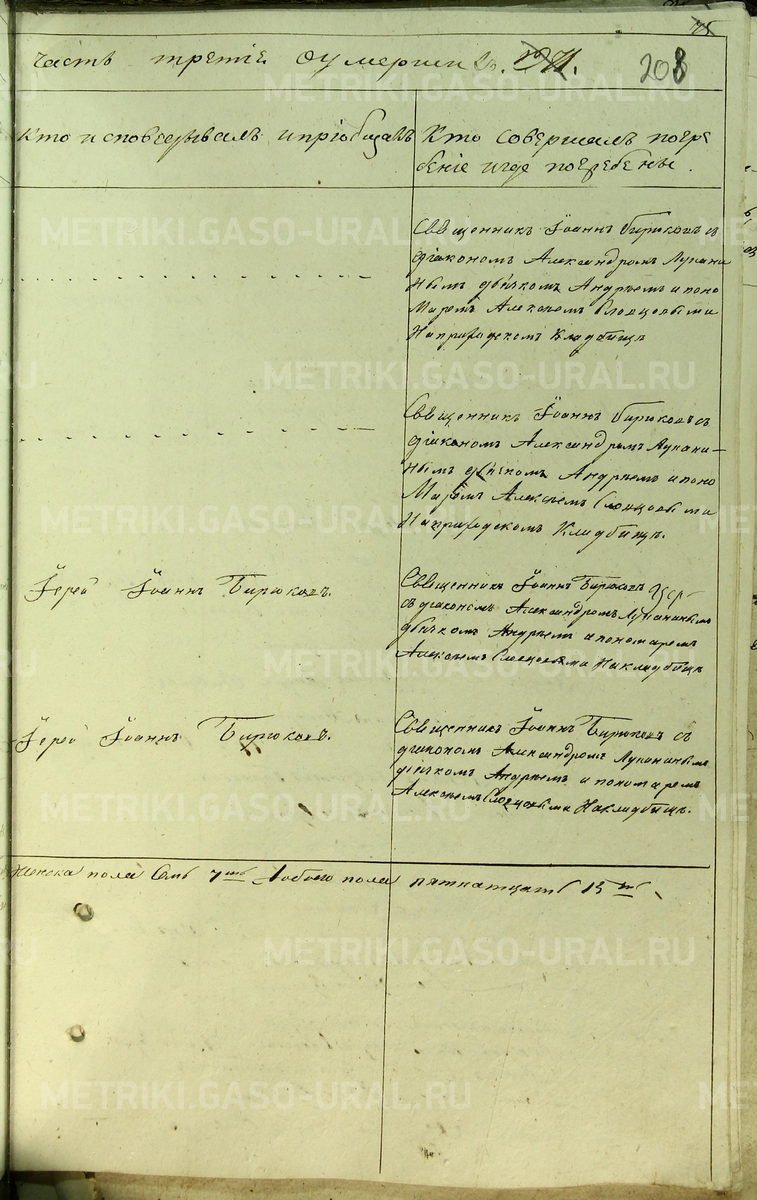 часть третiе о умерших.
208
Кто исповедывалъ и прiобщалъ
Кто совершалъ погре
бенiе и где погребены.
Священникъ Iоаннъ Бирюковъ съ
дiакономъ Александромъ Лупани
нымъ дьячкомъ Андрѣемъ и поно
маремъ Алексѣемъ Словцовыми
На приходскомъ кладбищѣ
Священникъ Iоаннъ Бирюковъ съ
дiакономъ Александромъ Лупани–
нымъ дьячкомъ Андрѣемъ и поно
Маремъ Алексѣемъ Словцовыми
На приходскомъ Кладбищѣ.
Iерей Iоаннъ Бирюковъ.
Священникъ Iоаннъ Бирюковъ
съ дiакономъ Александромъ Лупанинымъ
дьячкомъ Андрѣемъ и пономаремъ
Алексѣемъ Словцовыми На кладбищѣ
Iерей Iоаннъ Бирюковъ.
Священникъ Iоаннъ Бирюковъ съ
дiакономъ Александромъ Лупанинымъ
дьячкомъ Андрѣемъ и пономаремъ
Алексѣемъ Словцовыми На кладбищѣ.
Женска пола Семь 7 мь Аобоего пола пятнатцать 15 ть
METRIKI.GASO-URAL.RU